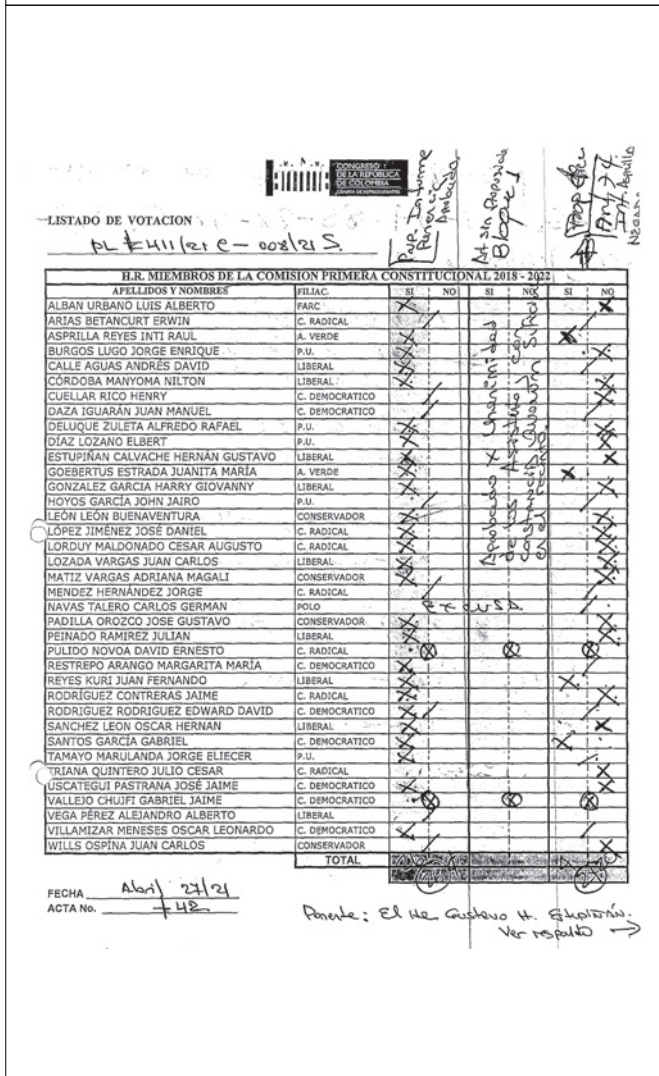 CONGRESO
DE LA REPÚBLICA
DE COLOMBIA
CÁMARA DE REPRESENTANTES
LISTADO DE VOTACION
PL # 411/21 C - 008/21 S.
Prop. Informe
Ponencia
Aprobada
Art sin Proposición
Bloque 1
Art 74
Negada
H.R. MIEMBROS DE LA COMISION PRIMERA CONSTITUCIONAL 2018 - 2022
APELLIDOS Y NOMBRES FILIAC. SI NO SI NO SI NO
ALBAN URBANO LUIS ALBERTO FARC X X
ARIAS BETANCURT ERWIN C. RADICAL
ASPRILLA REYES INTI RAUL A. VERDE X X
BURGOS LUGO JORGE ENRIQUE P.U. X X
CALLE AGUAS ANDRÉS DAVID LIBERAL X
CÓRDOBA MANYOMA NILTON LIBERAL X X
CUELLAR RICO HENRY C. DEMOCRATICO X
DAZA IGUARÁN JUAN MANUEL C. DEMOCRATICO
DELUQUE ZULETA ALFREDO RAFAEL P.U. X X
DÍAZ LOZANO ELBERT P.U. X X
ESTUPIÑAN CALVACHE HERNÁN GUSTAVO LIBERAL X X
GOEBERTUS ESTRADA JUANITA MARÍA A. VERDE X X
GONZALEZ GARCIA HARRY GIOVANNY LIBERAL X X
HOYOS GARCÍA JOHN JAIRO P.U.
LEÓN LEÓN BUENAVENTURA CONSERVADOR X X
LÓPEZ JIMÉNEZ JOSÉ DANIEL C. RADICAL X X
LORDUY MALDONADO CESAR AUGUSTO C. RADICAL X X
LOZADA VARGAS JUAN CARLOS LIBERAL X X
MATIZ VARGAS ADRIANA MAGALI CONSERVADOR X X
MENDEZ HERNÁNDEZ JORGE C. RADICAL
NAVAS TALERO CARLOS GERMAN POLO
PADILLA OROZCO JOSE GUSTAVO CONSERVADOR X X
PEINADO RAMIREZ JULIAN LIBERAL X X
PULIDO NOVOA DAVID ERNESTO C. RADICAL ⊗ ⊗ ⊗
RESTREPO ARANGO MARGARITA MARÍA C. DEMOCRATICO X
REYES KURI JUAN FERNANDO LIBERAL X X
RODRÍGUEZ CONTRERAS JAIME C. RADICAL X X
RODRIGUEZ RODRIGUEZ EDWARD DAVID C. DEMOCRATICO X
SANCHEZ LEON OSCAR HERNAN LIBERAL X X
SANTOS GARCÍA GABRIEL C. DEMOCRATICO X X
TAMAYO MARULANDA JORGE ELIECER P.U. X
TRIANA QUINTERO JULIO CESAR C. RADICAL X
USCATEGUI PASTRANA JOSÉ JAIME C. DEMOCRATICO X X
VALLEJO CHUJFI GABRIEL JAIME C. DEMOCRATICO ⊗ ⊗ ⊗
VEGA PÉREZ ALEJANDRO ALBERTO LIBERAL
VILLAMIZAR MENESES OSCAR LEONARDO C. DEMOCRATICO X
WILLS OSPINA JUAN CARLOS CONSERVADOR X
TOTAL
Aprobado X Unanimidad
de los Asistentes con
FECHA Abril 27/21
ACTA No. # 42
Ponente: El H.R. Gustavo H. Estupiñán.
Ver respaldo →